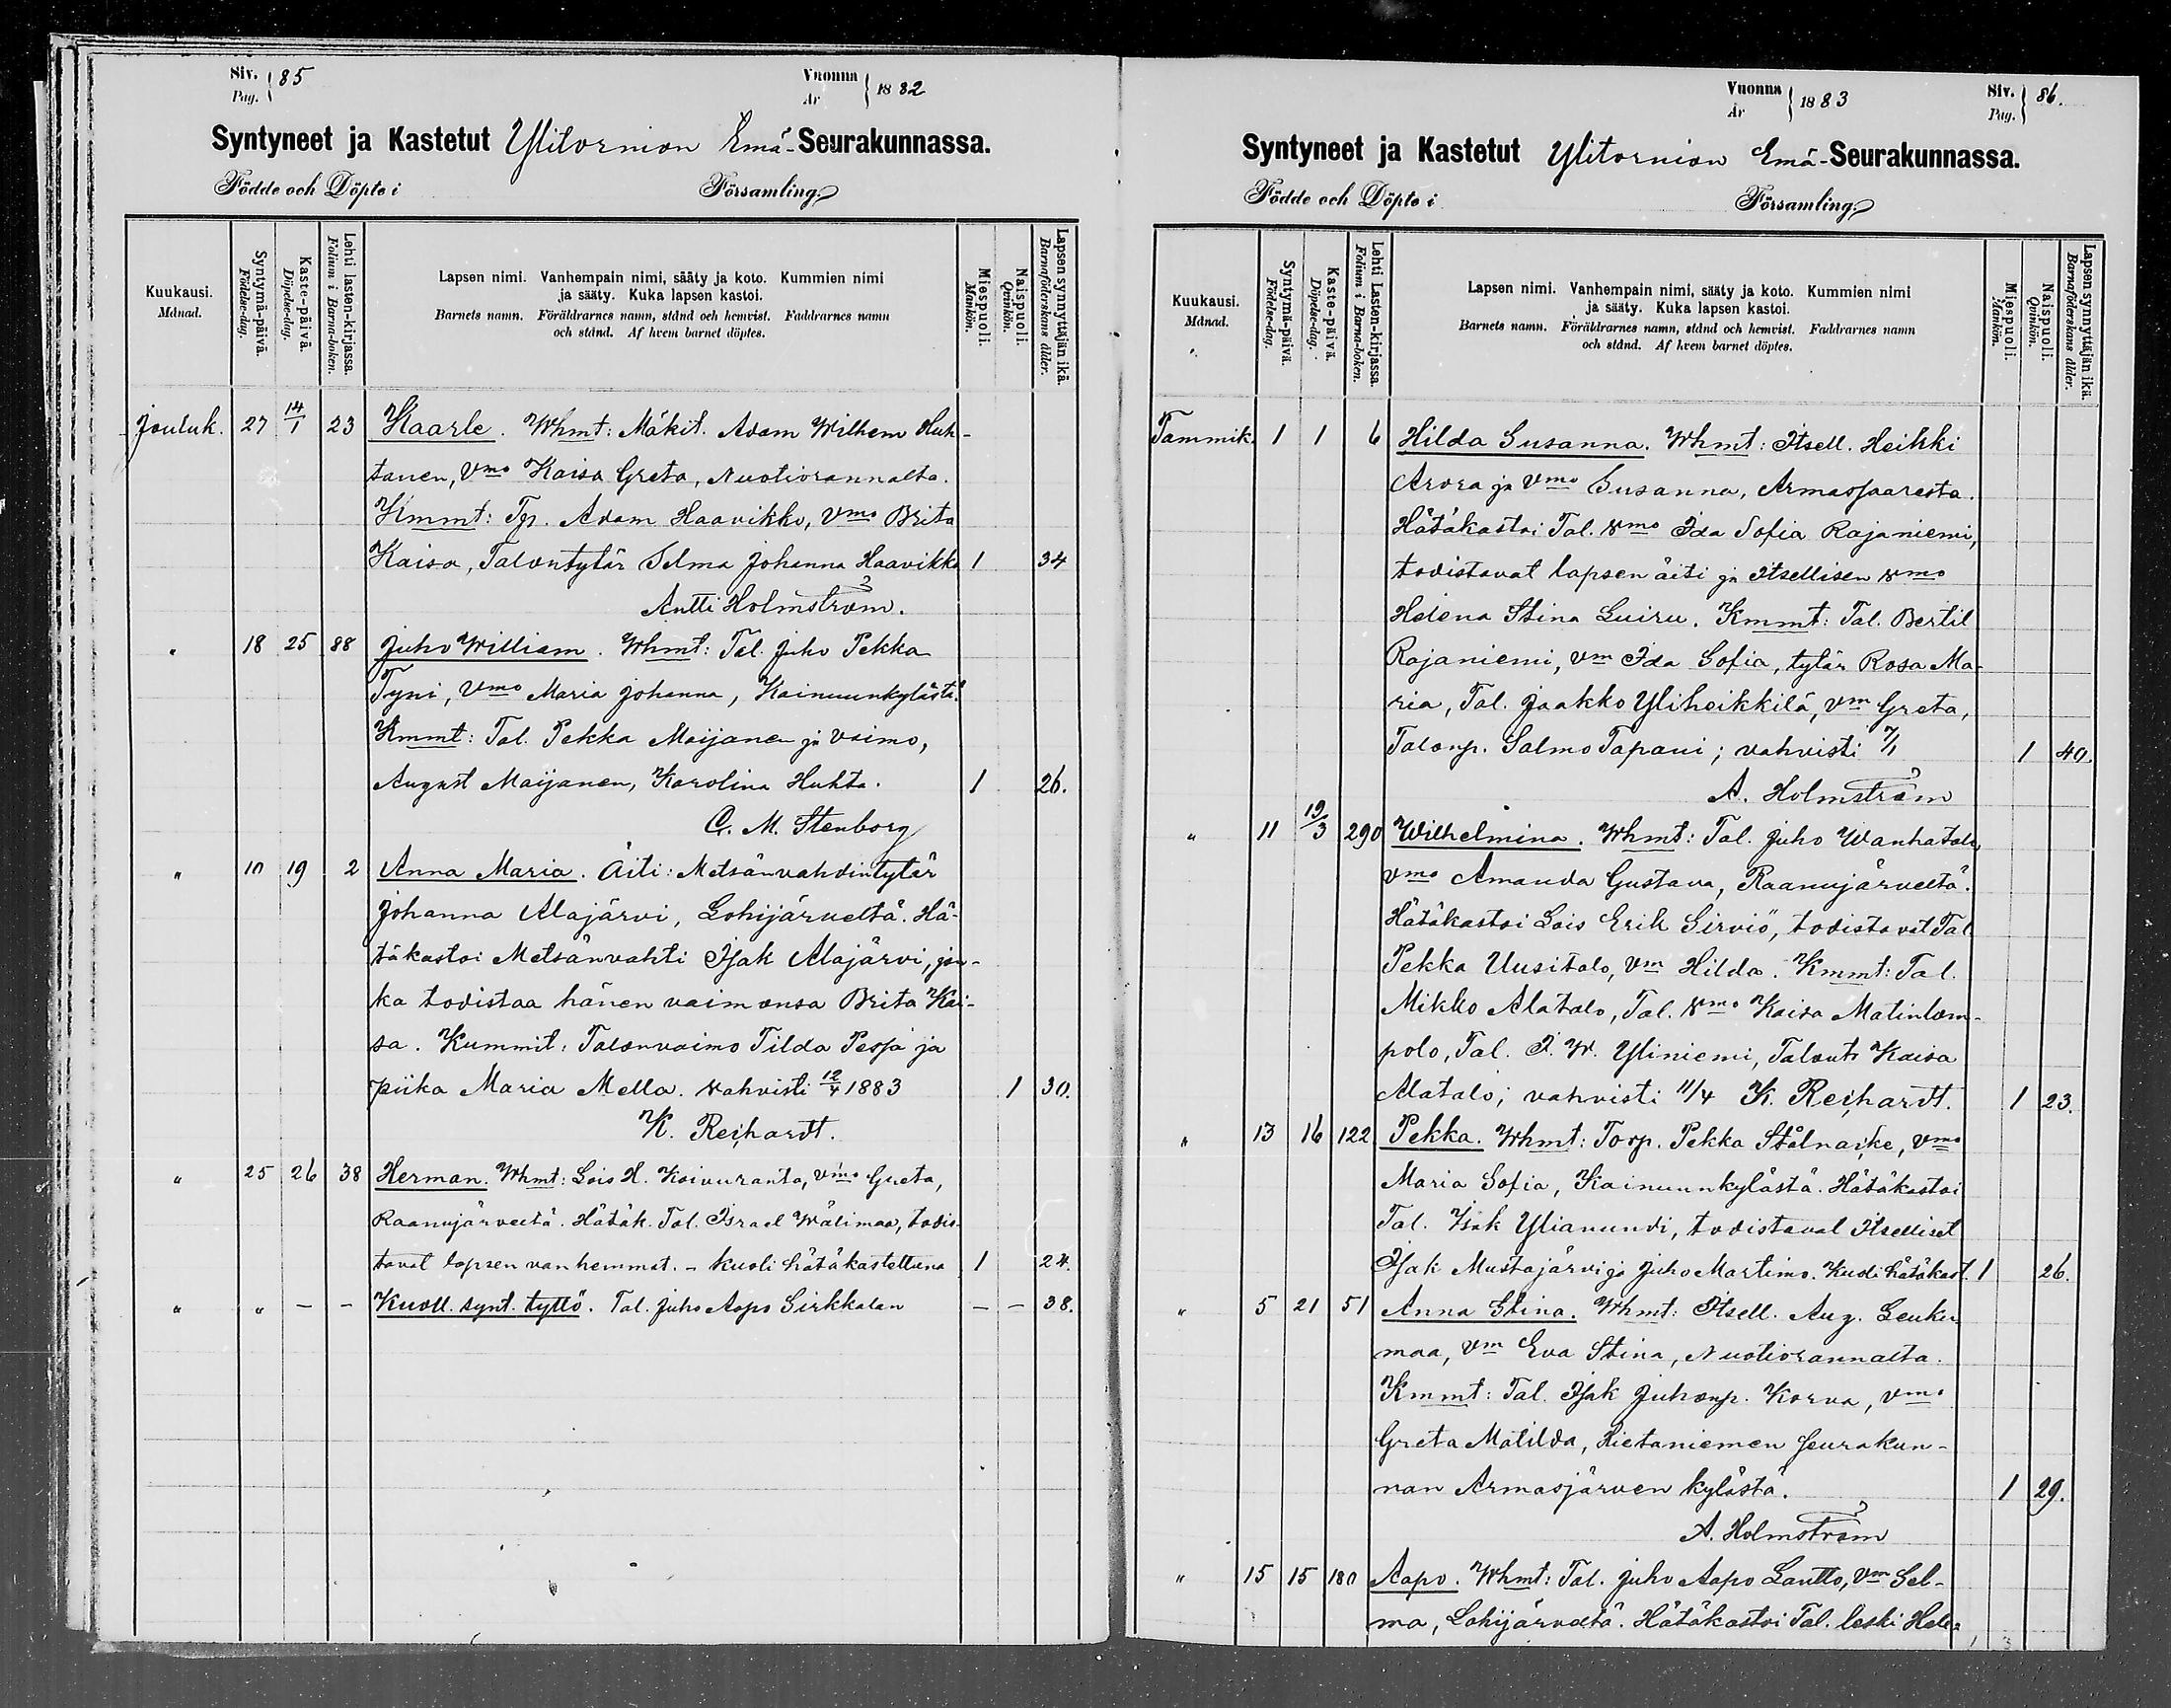 Siv. 85
Pag.
Vuonna 1882
År
Syntyneet ja Kastetut Ylitornion Emä-Seurakunnassa.
Födde och Döpte i Församling.
Kuukausi.
Månad.
Syntymä-päivä.
Födelse-dag.
Kaste-päivä.
Döpelse-dag.
Lehti lasten-kirjassa.
Folium i Barna-boken.
Lapsen nimi. Vanhempain nimi, sääty ja koto. Kummien nimi
ja sääty. Kuka lapsen kastoi.
Barnets namn. Föräldrarnes namn, stånd och hemvist. Faddrarnes namn
och stånd. Af hvem barnet döptes.
Miespuoli.
Mankön.
Naispuoli.
Qvinkön.
Lapsen synnyttäjän ikä.
Barnaföderskans ålder.
Jouluk. 27 14/1 23 Kaarle. Whmt: Mäkit. Adam Wilhem Huh-
tanen, Vmo Kaisa Greta, Nuotiorannalta.
Kmmt: Tp. Adam Haavikko, Vmo Brita
Kaisa, Talontytär Selma Johanna Haavikko 1 34
Antti Holmström.
" 18 25 88 Juho William. Whmt: Tal. Juho Pekka
Tyni, Vmo Maria Johanna, Kainuunkylästä.
Kmmt: Tal. Pekka Maijanen ja vaimo,
August Maijanen, Karolina Huhta. 1 26.
C. M. Stenborg
" 10 19 2 Anna Maria. Äiti: Metsänvahdintytär
Johanna Alajärvi, Lohijärveltä. Hä-
täkastoi Metsänvahti Isak Alajärvi, jon-
ka todistaa hänen vaimonsa Brita Kai-
sa. Kummit: Talonvaimo Tilda Pessa ja
piika Maria Mella. vahvisti 12/4 1883 1 30.
K. Reihardt.
" 25 26 38 Herman. Whmt: Lois H. Koivuranta, Vmo Greta,
Raanujärveltä. Hätäk. Tal. Israel Wälimaa, todis-
tavat lapsen vanhemmat. - kuoli hätäkastettuna 1 24.
" " - - Kuoll. synt. tyttö. Tal. Juho Aapo Sirkkalan - - 38.
Vuonna 1883
År
Siv. 86.
Pag.
Syntyneet ja Kastetut Ylitornion Emä-Seurakunnassa.
Födde och Döpte i Församling.
Kuukausi.
Månad.
Syntymä-päivä.
Födelse-dag.
Kaste-päivä.
Döpelse-dag.
Lehti Lasten-kirjassa.
Folium i Barna-boken.
Lapsen nimi. Vanhempain nimi, sääty ja koto. Kummien nimi
ja sääty. Kuka lapsen kastoi.
Barnets namn. Föräldrarnes namn, stånd och hemvist. Faddrarnes namn
och stånd. Af hvem barnet döptes.
Miespuoli.
Mankön.
Naispuoli.
Qvinkön.
Lapsen synnyttäjän ikä.
Barnaföderskans ålder.
Tammik. 1 1 6 Hilda Susanna. Whmt: Itsell. Heikki
Arvra ja Vmo Susanna, Armassaaresta.
Hätäkastoi Tal. Vmo Ida Sofia Rajaniemi,
todistavat lapsen äiti ja Itsellisen Vmo
Helena Stina Luiru. Kmmt: Tal. Bertil
Rajaniemi, Vm Ida Sofia, tytär Rosa Ma-
ria, Tal. Jaakko Yliheikkilä, Vm Greta,
Talonp. Salmo Tapani; vahvisti 7/1 1 40.
A. Holmström
" 11 19/3 290 Wilhelmina. Whmt: Tal. Juho Wanhatalo,
Vmo Amanda Gustava, Raanujärveltä.
Hätäkastoi Lois Erik Sirviö, todistavat Tal.
Pekka Uusitalo, Vm Hilda. Kmmt: Tal.
Mikko Alatalo, Tal. Vmo Kaisa Matinlom-
polo, Tal. I. W. Yliniemi, Talont. Kaisa
Alatalo; vahvisti 11/4 K. Reihardt. 1 23.
" 13 16 122 Pekka. Whmt: Torp. Pekka Stålnacke, Vmo
Maria Sofia, Kainuunkylästä. Hätäkastoi
Tal. Isak Ylianundi, todistavat Itselliset
Isak Mustajärvi ja Juho Martimo. Kuoli hätäkast. 1 26.
" 5 21 51 Anna Stina. Whmt: Itsell. Aug. Leuku
maa, Vm Eva Stina, Nuotiorannalta.
Kmmt: Tal. Isak Juhonp. Korva, Vmo
Greta Matilda, Hietaniemen seurakun-
nan Armasjärven kylästä. 1 29.
A. Holmström
" 15 15 180 Aapo. Whmt: Tal. Juho Aapo Lautto, Vm Sel-
ma, Lohijärveltä. Hätäkastoi Tal. leski Hele-